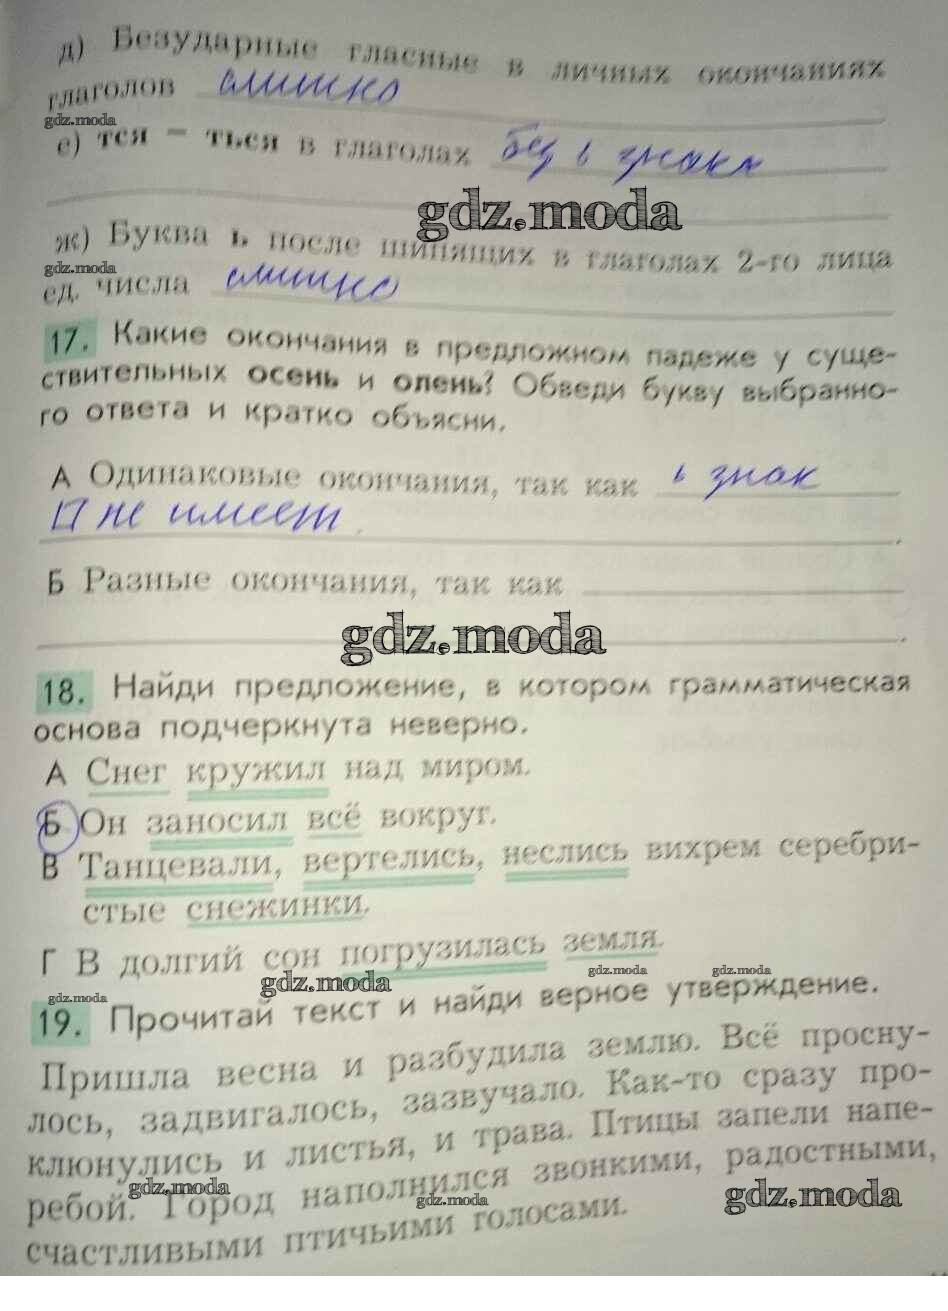 д) Безударные гласные в личных окончаниях
глаголов слишко
gdz.moda
е) тся – ться в глаголах без ь знака
gdz.moda
ж) Буква ь после шипящих в глаголах 2-го лица
gdz.moda
ед. числа слишко
17. Какие окончания в предложном падеже у суще-
ствительных осень и олень? Обведи букву выбранно-
го ответа и кратко объясни.
А Одинаковые окончания, так как ь знак
П не имеет .
Б Разные окончания, так как
gdz.moda
18. Найди предложение, в котором грамматическая
основа подчеркнута неверно.
А Снег кружил над миром.
Б Он заносил всё вокруг.
В Танцевали, вертелись, неслись вихрем серебри-
стые снежинки.
Г В долгий сон погрузилась земля.
gdz.moda gdz.moda gdz.moda gdz.moda
19. Прочитай текст и найди верное утверждение.
Пришла весна и разбудила землю. Всё просну-
лось, задвигалось, зазвучало. Как-то сразу про-
клюнулись и листья, и трава. Птицы запели напе-
ребой. Город наполнился звонкими, радостными,
gdz.moda gdz.moda gdz.moda
счастливыми птичьими голосами.